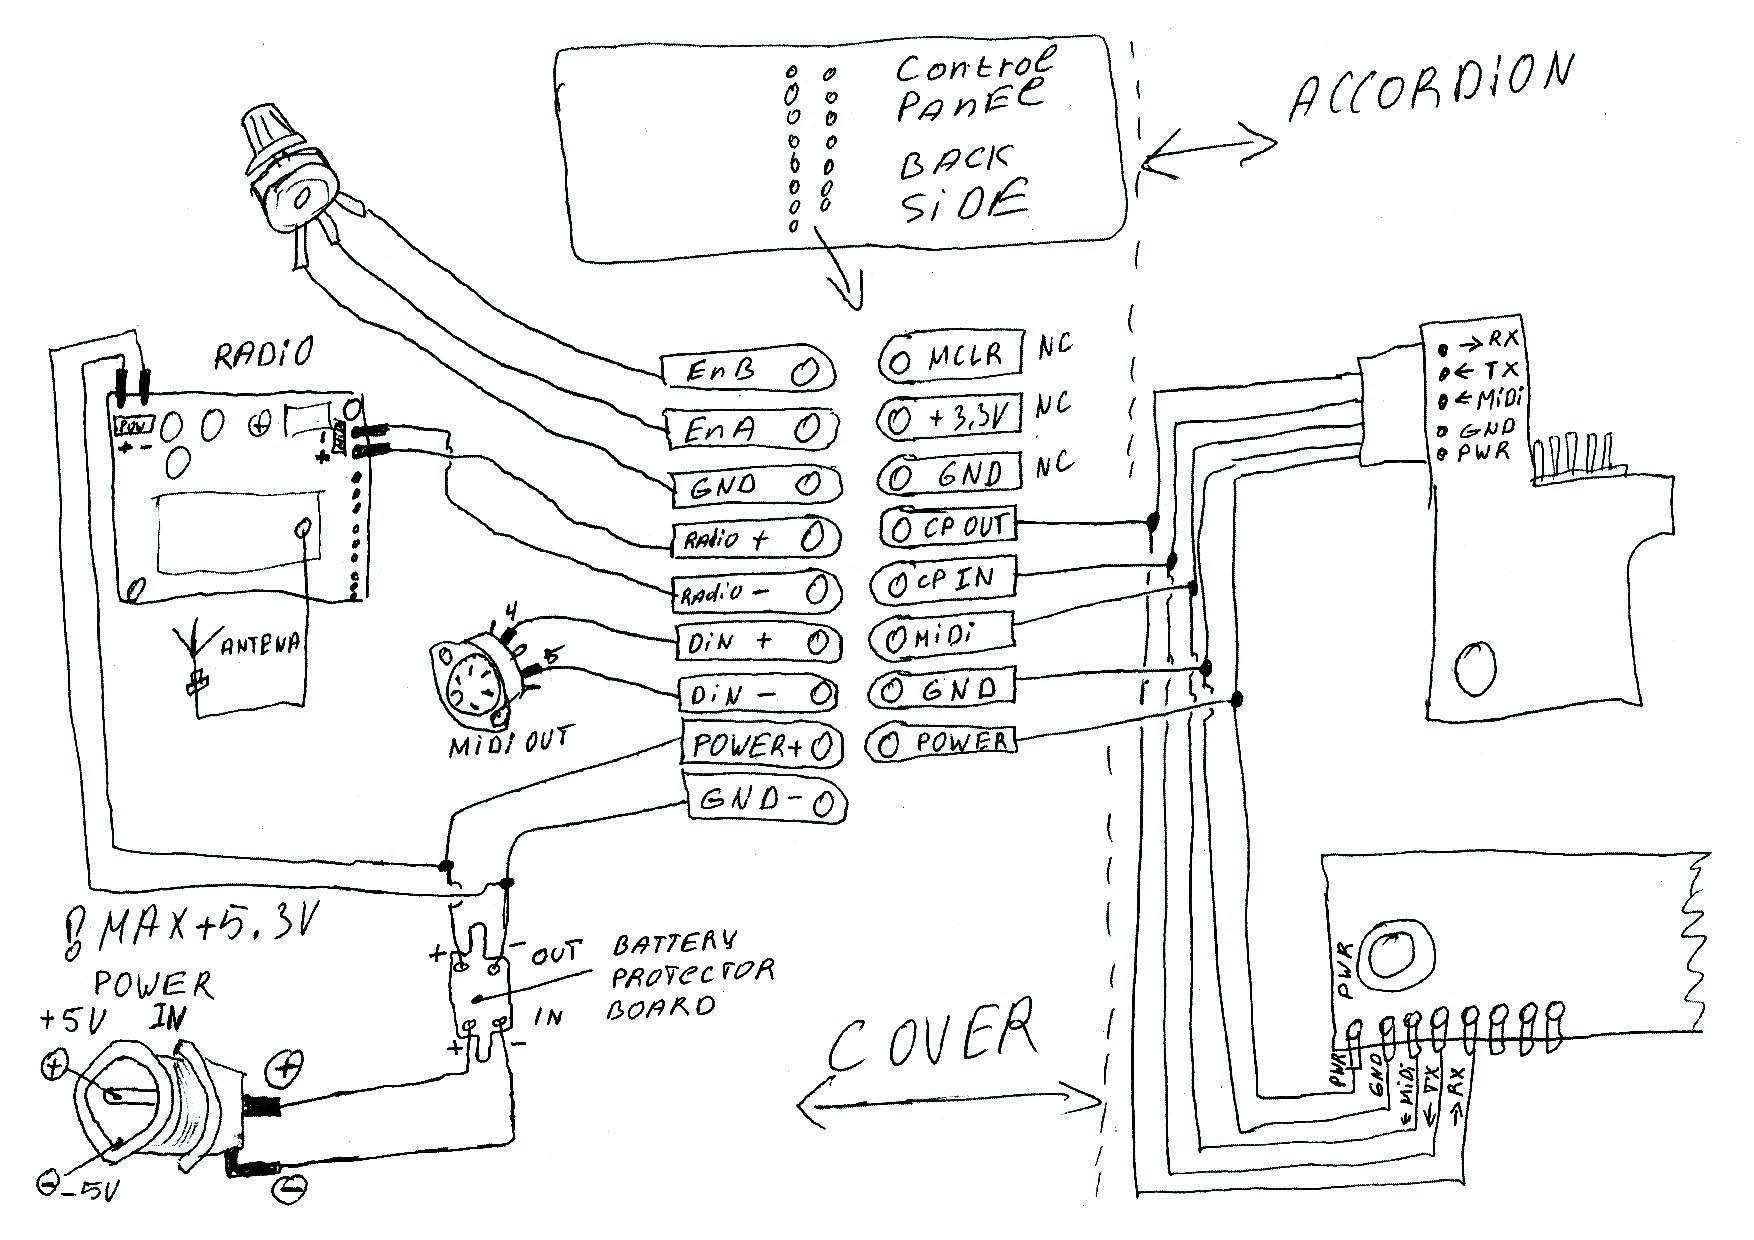 Control
PANEL
BACK
SiDE
ACCORDiON
RADiO
POW
+ -
-
+
ANTENA
EnB
EnA
GND
RADiO +
RADiO -
DiN +
DiN -
POWER+
GND-
MCLR NC
+3,3V NC
GND NC
CP OUT
CP IN
MiDi
GND
POWER
→RX
←TX
←MiDi
GND
PWR
4
5
MiDi OUT
! MAX+5.3V
POWER
+5V IN
+
+
-
-5V
-
+ - OUT
IN
+ -
BATTERY
PROTECTOR
BOARD
COVER
PWR
PWR
GND
←MiDi
←TX
→RX